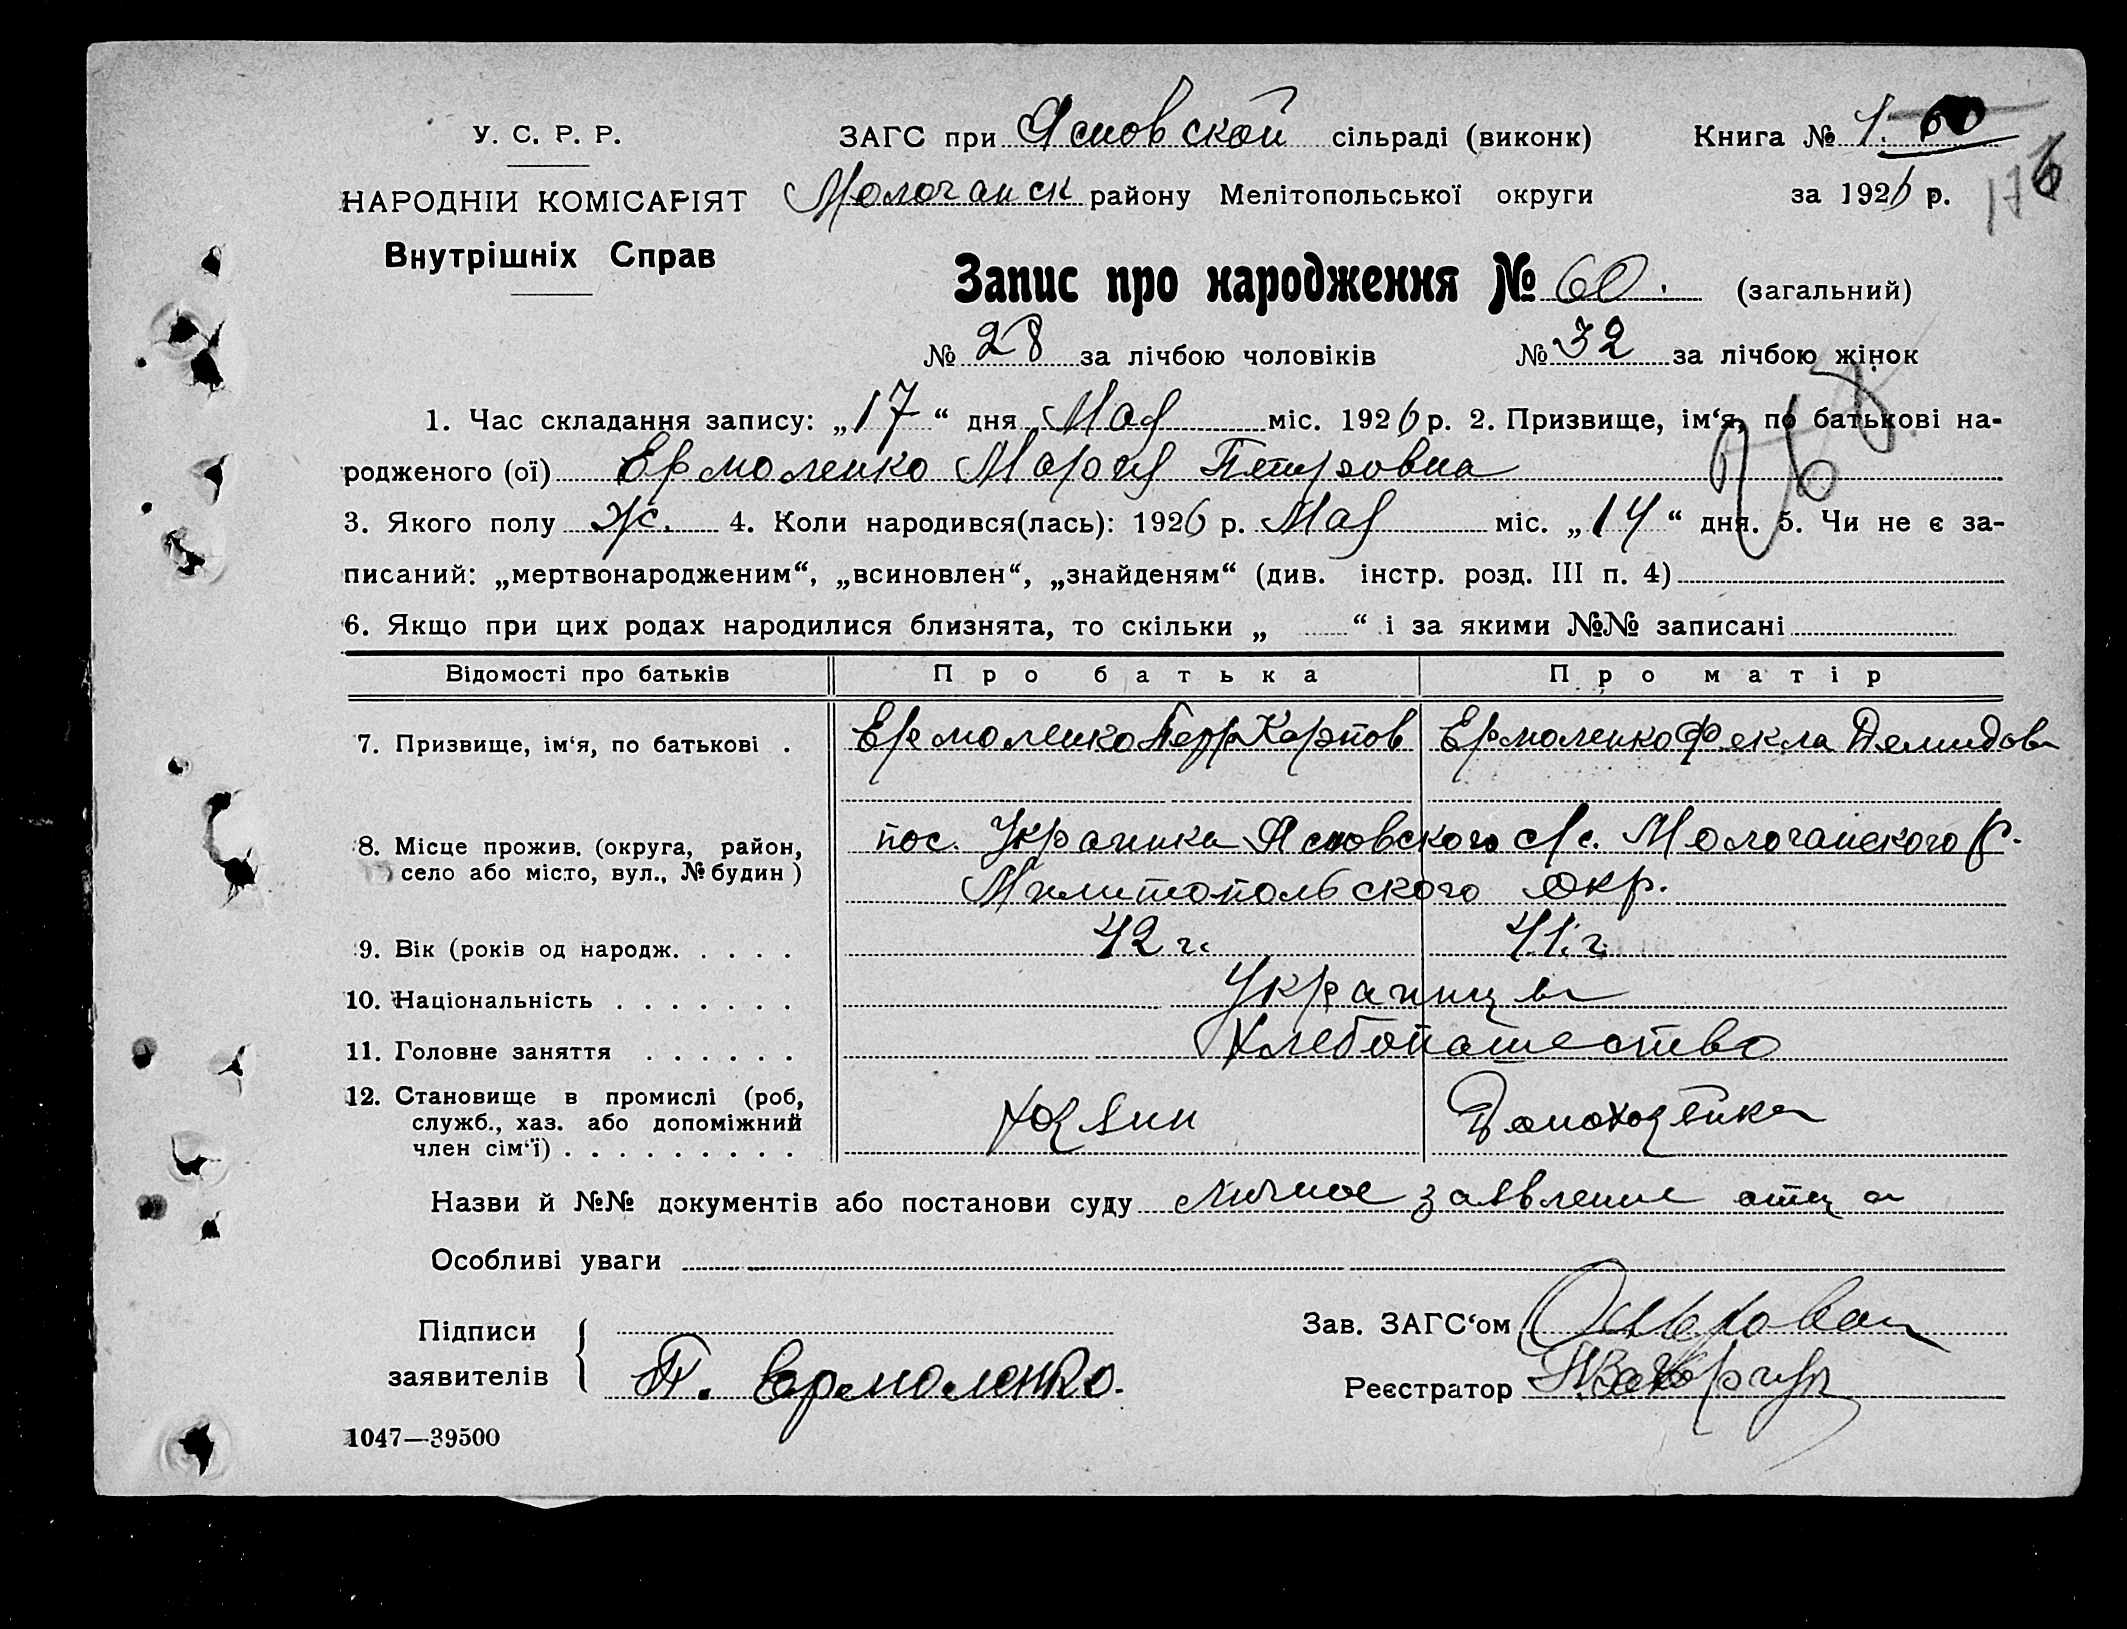 У. С. Р. Р.
НАРОДНІЙ КОМІСАРІЯТ
Внутрішніх Справ
ЗАГС при Ясновской сільраді (виконк)
Молочанск району Мелітопольської округи
Книга № 1. 60
за 1926 р.
176
Запис про народження № 60. (загальний)
№ 28 за лічбою чоловіків № 32 за лічбою жінок
1. Час складання запису: „17“ дня Мая міс. 1926 р. 2. Призвище, ім‘я, по батькові на-
родженого (ої) Ермоленко Мария Петровна
3. Якого полу ж. 4. Коли народився(лась): 1926 р. Мая міс. „14“ дня. 5. Чи не є за-
писаний: „мертвонародженим“, „всиновлен“, „знайденям“ (див. інстр. розд. III п. 4)
6. Якщо при цих родах народилися близнята, то скільки „ “ і за якими №№ записані
Відомості про батьків Про батька Про матір
7. Призвище, ім‘я, по батькові . Ермоленко Петр Карпов Ермоленко Фекла Демидова
8. Місце прожив. (округа, район, село або місто, вул., № будин ) пос. Украинка Ясновского с/с. Молочанского р.
Милитопольского окр.
9. Вік (років од народж. . . . . 42 г. 41. г.
10. Національність . . . . . . . Украинцы
11. Головне заняття . . . . . . Хлебопашество
12. Становище в промислі (роб,
служб., хаз. або допоміжний
член сім‘ї) . . . . . . . . . Хозяин Домохозяйка
Назви й №№ документів або постанови суду личное заявление отца
Особливі уваги
Підписи заявителів
П. Ермоленко.
Зав. ЗАГС‘ом
Реєстратор
1047—39500